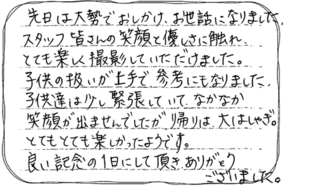 先日は大勢でおしかけ、お世話になりました。
スタッフ皆さんの笑顔と優しさに触れ、
とても楽しく撮影していただけました。
子供の扱いが上手で参考にもなりました。
子供達は少し緊張していて、なかなか
笑顔が出ませんでしたが帰りは、大はしゃぎ。
とてもとても楽しかったようです。
良い記念の1日にして頂きありがとう
ございました。